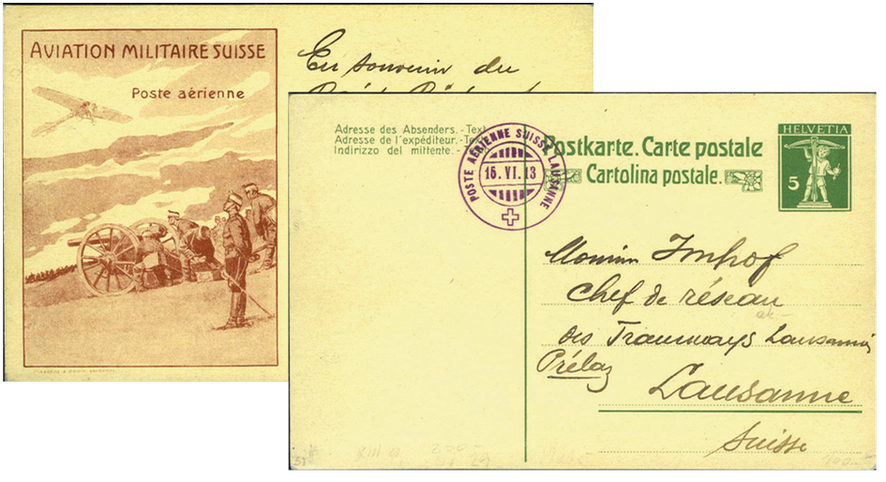 AVIATION MILITAIRE SUISSE
Poste aérienne
En souvenir du
Adresse des Absenders.-Text
Adresse de l'expéditeur.-Te
Indirizzo del mittente.-
POSTE AÉRIENNE SUISSE LAUSANNE
16.VI.13
Postkarte. Carte postale
Cartolina postale.
HELVETIA
5
Monsieur Imhof
Chef de réseau
des Tramways Lausannois
Prélaz
Lausanne
Suisse